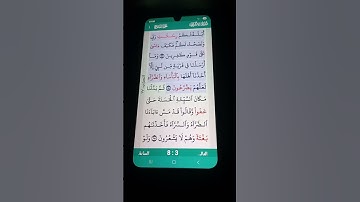 أَبْلَغْتُكُمْ رِسَٰلَٰتِ رَبِّي
وَنَصَحْتُ لَكُمْ فَكَيْفَ ءَاسَىٰ
عَلَىٰ قَوْمٍ كَٰفِرِينَ وَمَآ
أَرْسَلْنَا فِي قَرْيَةٍ مِّن نَّبِيٍّ إِلَّآ
أَخَذْنَآ أَهْلَهَا بِٱلْبَأْسَآءِ وَٱلضَّرَّآءِ
لَعَلَّهُمْ يَضَّرَّعُونَ ثُمَّ بَدَّلْنَا
مَكَانَ ٱلسَّيِّئَةِ ٱلْحَسَنَةَ حَتَّىٰ
عَفَوا۟ وَّقَالُوا۟ قَدْ مَسَّ ءَابَآءَنَا
ٱلضَّرَّآءُ وَٱلسَّرَّآءُ فَأَخَذْنَٰهُم
بَغْتَةً وَهُمْ لَا يَشْعُرُونَ وَلَوْ
8:3